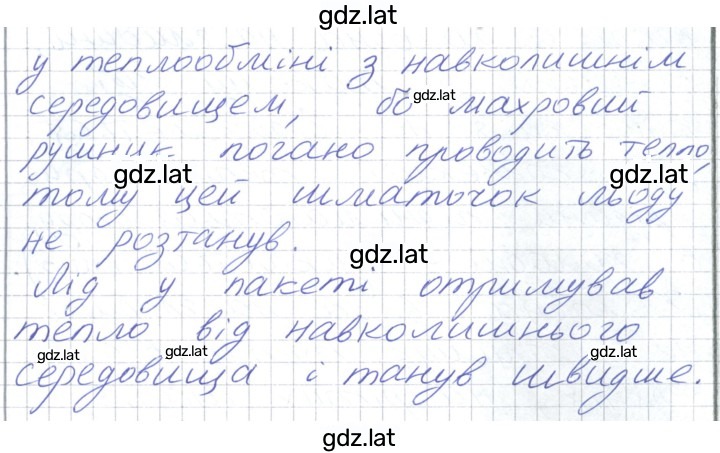 gdz.lat
у теплообміні з навколишнім
середовищем, бо gdz.lat махровий
рушник погано проводить тепло,
gdz.lat gdz.lat
тому цей шматочок льоду
не розтанув.
gdz.lat
Лід у пакеті отримував
тепло від навколишнього
gdz.lat gdz.lat gdz.lat
середовища і танув швидше.
gdz.lat